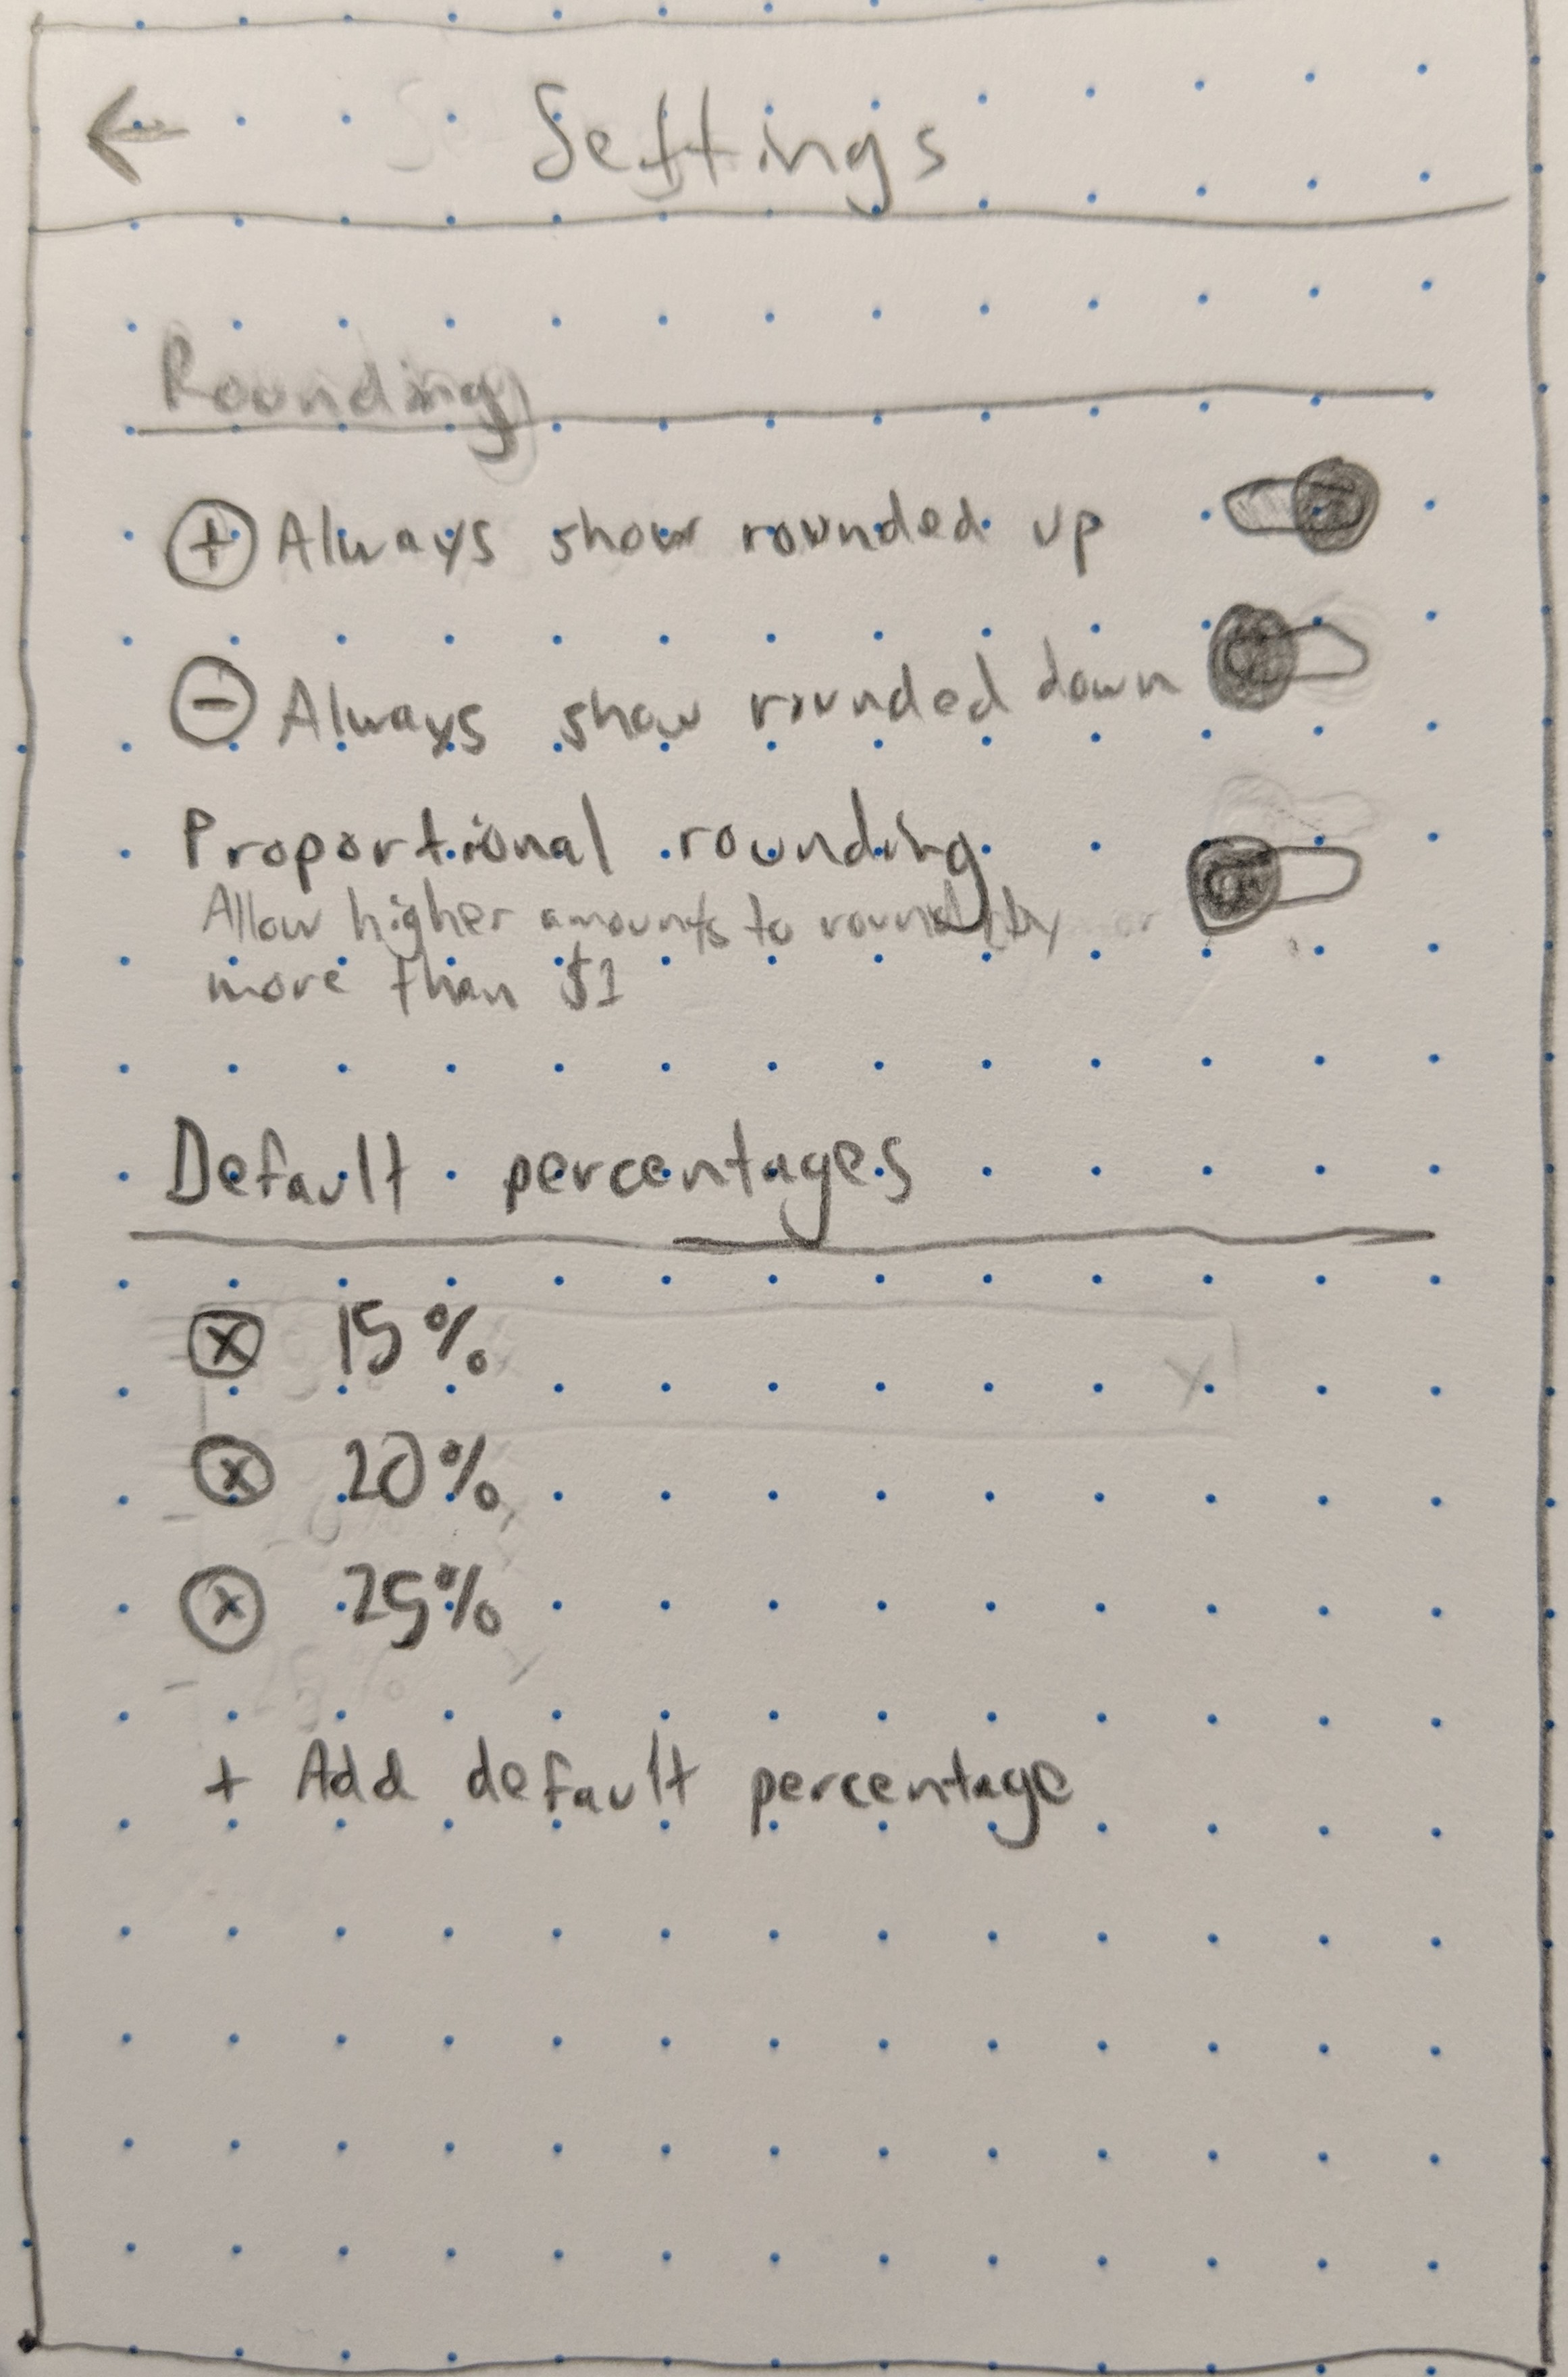 ← Settings
Rounding
+ Always show rounded up
- Always show rounded down
Proportional rounding
Allow higher amounts to round by
more than $1
Default percentages
x 15%
x 20%
x 25%
+ Add default percentage